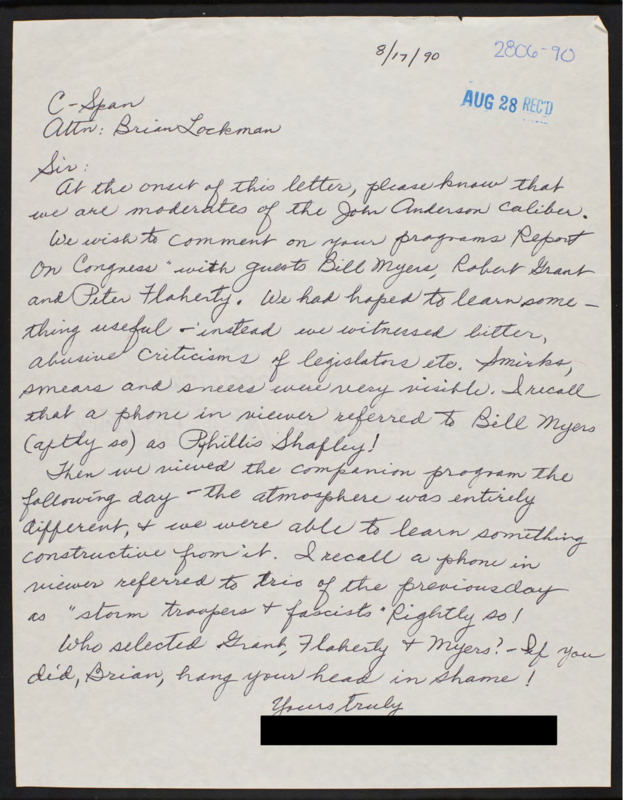 8/17/90
2806-90
AUG 28 REC'D
C-Span
Attn: Brian Lockman
Sir:
At the onset of this letter, please know that
we are moderates of the John Anderson caliber.
We wish to comment on your programs Report
On Congress" with guests Bill Myers, Robert Grant
and Peter Flaherty. We had hoped to learn some-
thing useful - instead we witnessed bitter,
abusive criticisms of legislators etc. Smirks,
smears and sneers were very visible. I recall
that a phone in viewer referred to Bill Myers
(aptly so) as Phyllis Shafley!
Then we viewed the companion program the
following day - the atmosphere was entirely
different, & we were able to learn something
constructive from it. I recall a phone in
viewer referred to trio of the previous day
as "storm troopers & fascists" Rightly so!
Who selected Grant, Flaherty & Myers? - If you
did, Brian, hang your head in shame!
Yours truly